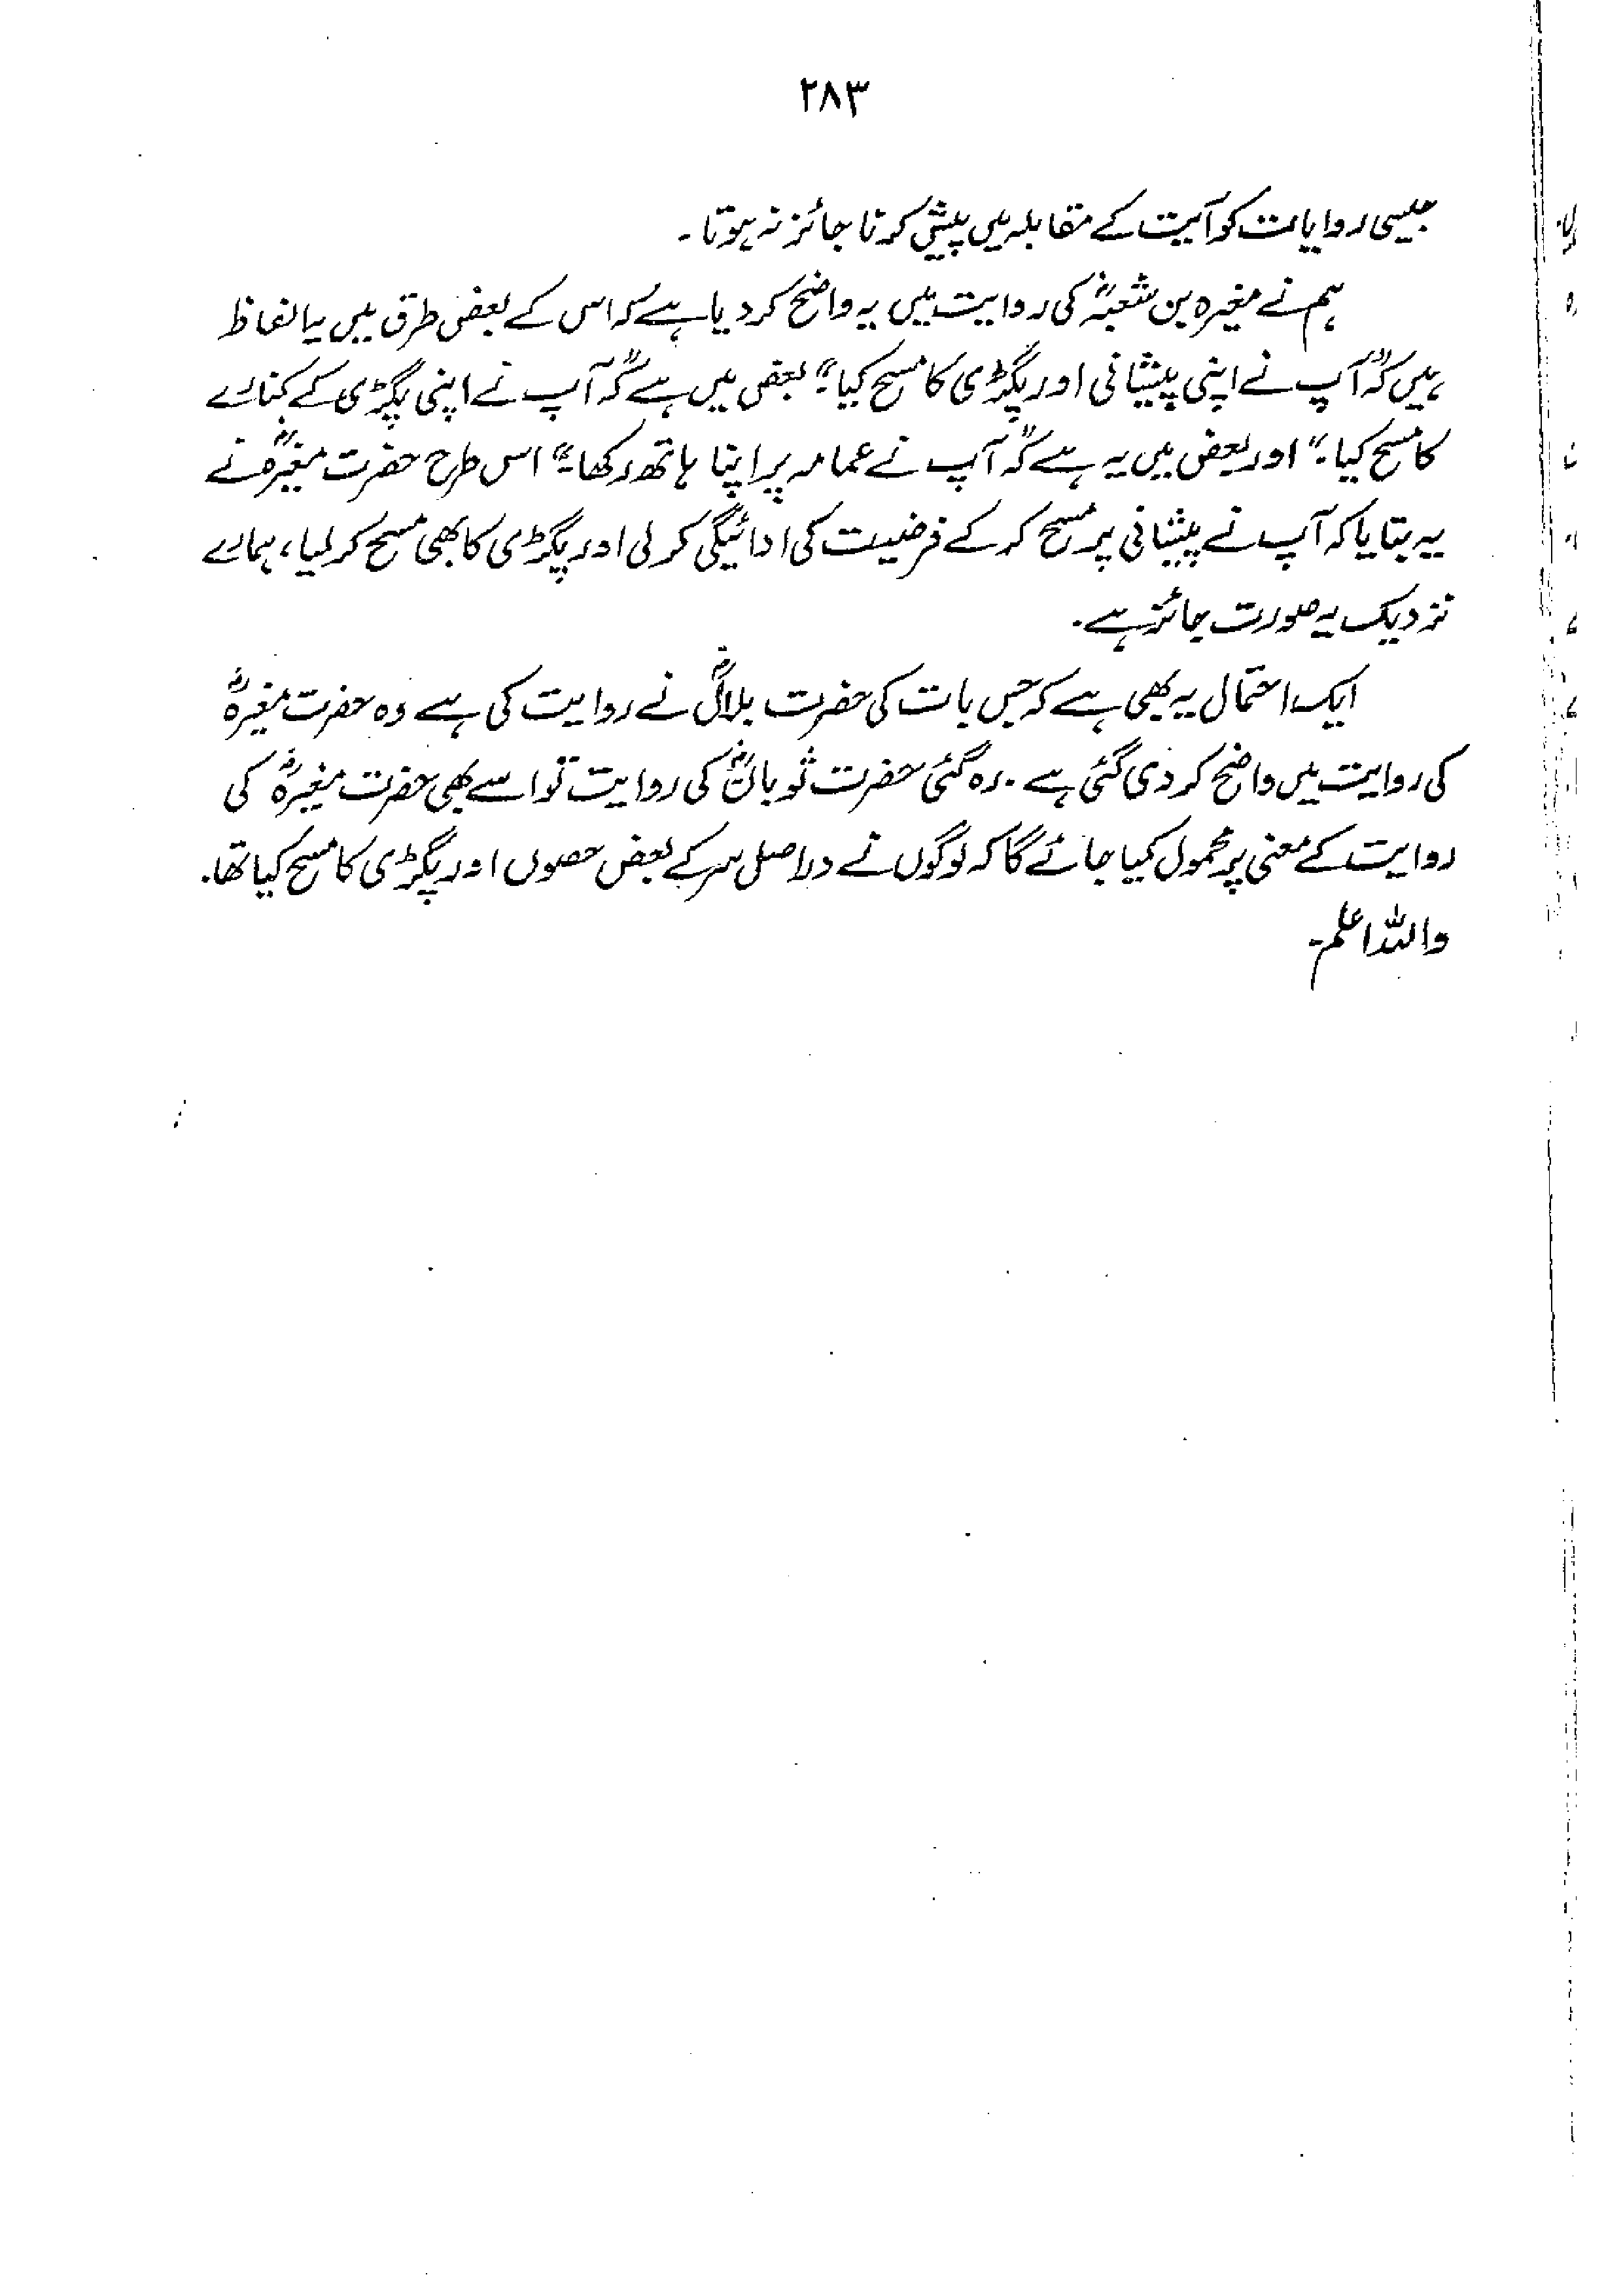 ۲۸۳
جیسی روایات کو آیت کے مقابلہ میں پیش کرنا جائز نہ ہوتا۔
ہم نے مغیرہ بن شعبہؓ کی روایت میں یہ واضح کر دیا ہے کہ اس کے بعض طرق میں یہ الفاظ
ہیں کہ "آپ نے اپنی پیشانی اور پگڑی کا مسح کیا۔" بعض میں ہے کہ "آپ نے اپنی پگڑی کے کنارے
کا مسح کیا۔" اور بعض میں یہ ہے کہ "آپ نے عمامہ پر اپنا ہاتھ رکھا۔" اس طرح حضرت مغیرہؓ نے
یہ بتایا کہ آپ نے پیشانی پر مسح کر کے فرضیت کی ادائیگی کر لی اور پگڑی کا بھی مسح کر لیا، ہمارے
نزدیک یہ صورت جائز ہے۔
ایک احتمال یہ بھی ہے کہ جس بات کی حضرت بلالؓ نے روایت کی ہے وہ حضرت مغیرہؓ
کی روایت میں واضح کر دی گئی ہے۔ رہ گئی حضرت ثوبانؓ کی روایت تو اسے بھی حضرت مغیرہؓ کی
روایت کے معنی پر محمول کیا جائے گا کہ لوگوں نے دراصل سر کے بعض حصوں اور پگڑی کا مسح کیا تھا۔
واللہ اعلم۔